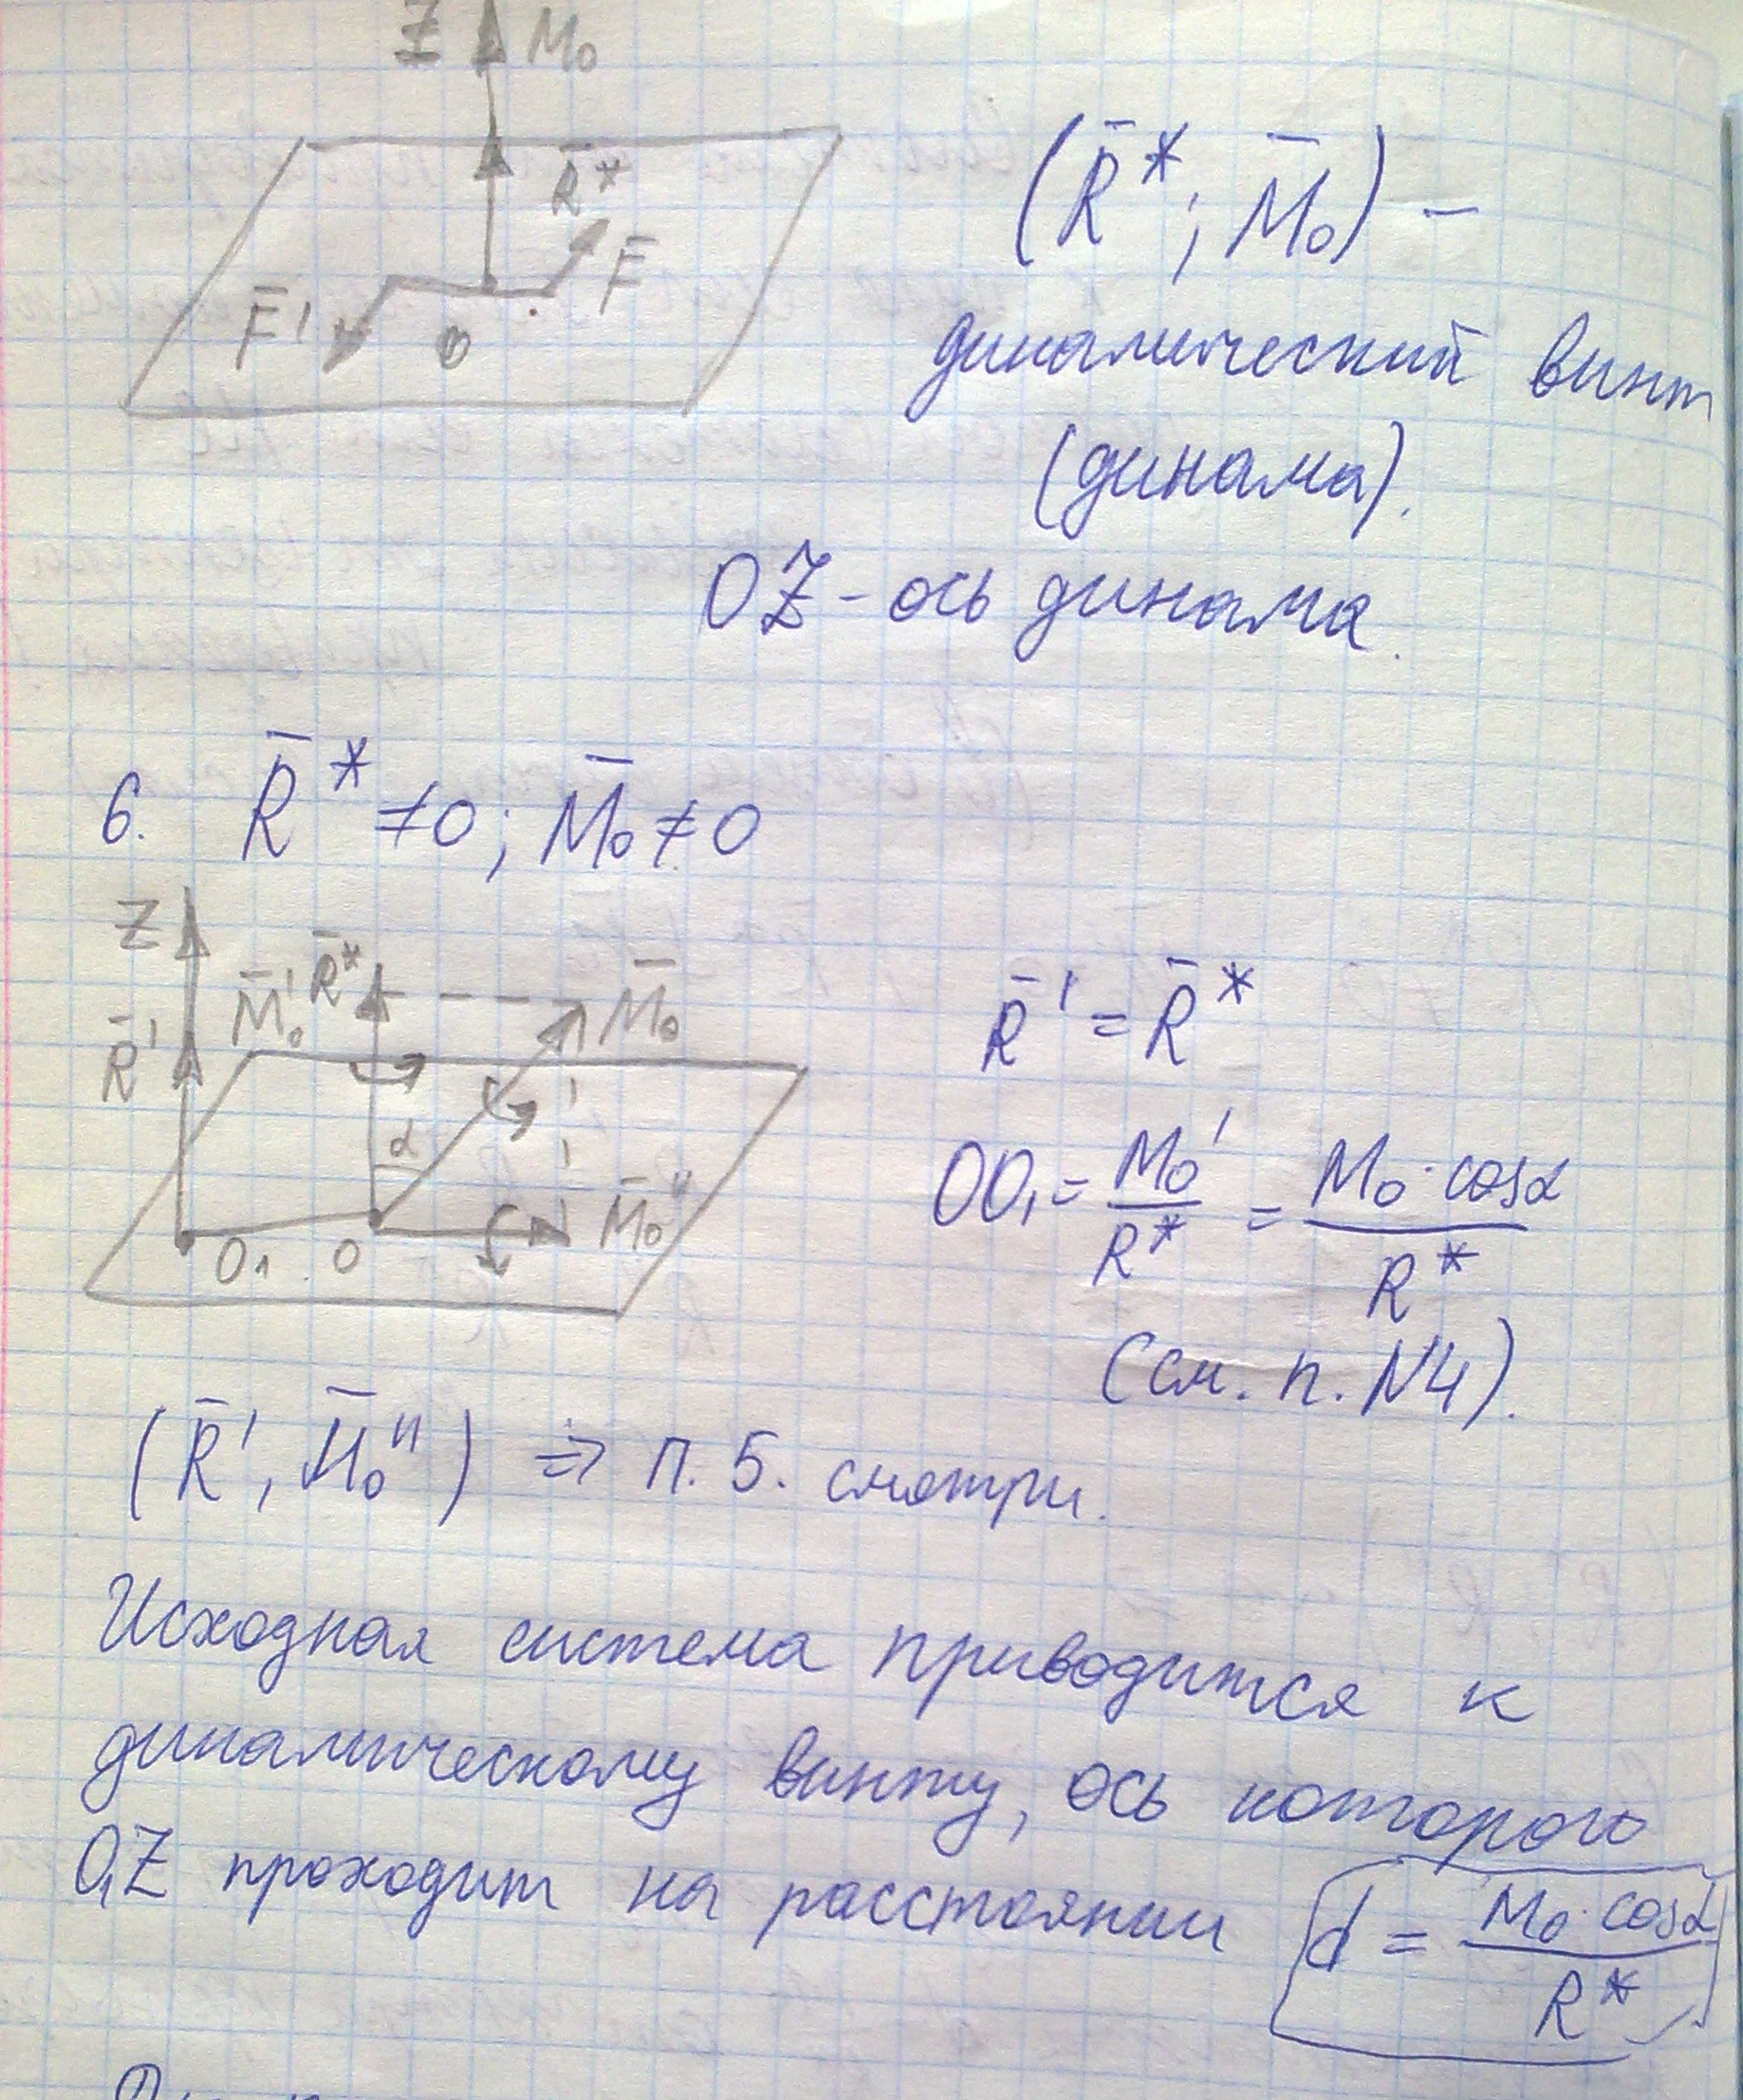 Z M₀
R̄*
F̄
F̄' 0
(R̄*; M̄₀) –
динамический винт
(динама).
OZ - ось динама.
6. R̄* ≠ 0; M̄₀ ≠ 0
Z M̄₀' R̄* M̄₀
R̄'
α
M̄₀''
O₁ O
R̄' = R̄*
OO₁ = M₀'/R* = M₀·cosα/R*
(см. п. N4).
(R̄', M̄₀'') ⇒ п. 5. смотри.
Исходная система приводится к
динамическому винту, ось которого
O₁Z проходит на расстоянии d = M₀·cosα/R*